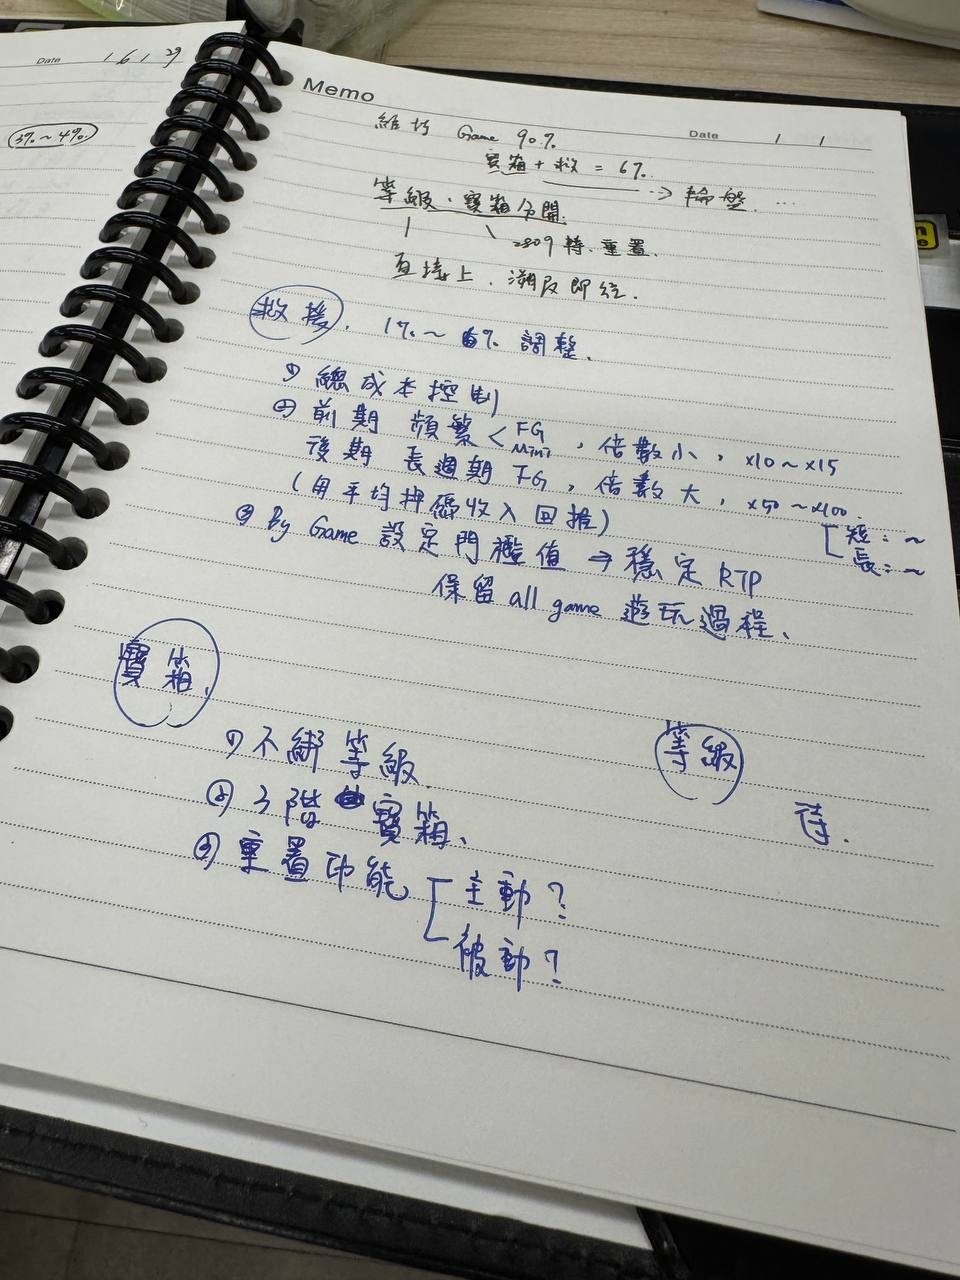 Date 1 6 1 29
3% ~ 4%
Memo
Date 1 1
維持 Game 90%
寶箱 + 救 = 6%. → 輪盤. …
等級、寶箱分開.
2809 轉、重置.
直接上、溯及即往.
救援. 1% ~ 6% 調整、
① 總成本控制
② 前期 頻繁 < FG Mini , 倍數小, x10 ~ x15
後期 長週期 FG, 倍數大, x50 ~ x100.
(用平均押碼收入回推)
[ 短: ~
長: ~
③ By Game 設定門檻值 → 穩定 RTP
保留 all game 遊玩過程、
寶箱.
① 不綁等級.
② 3階 寶箱、
③ 重置功能 [ 主動?
被動?
等級
待.